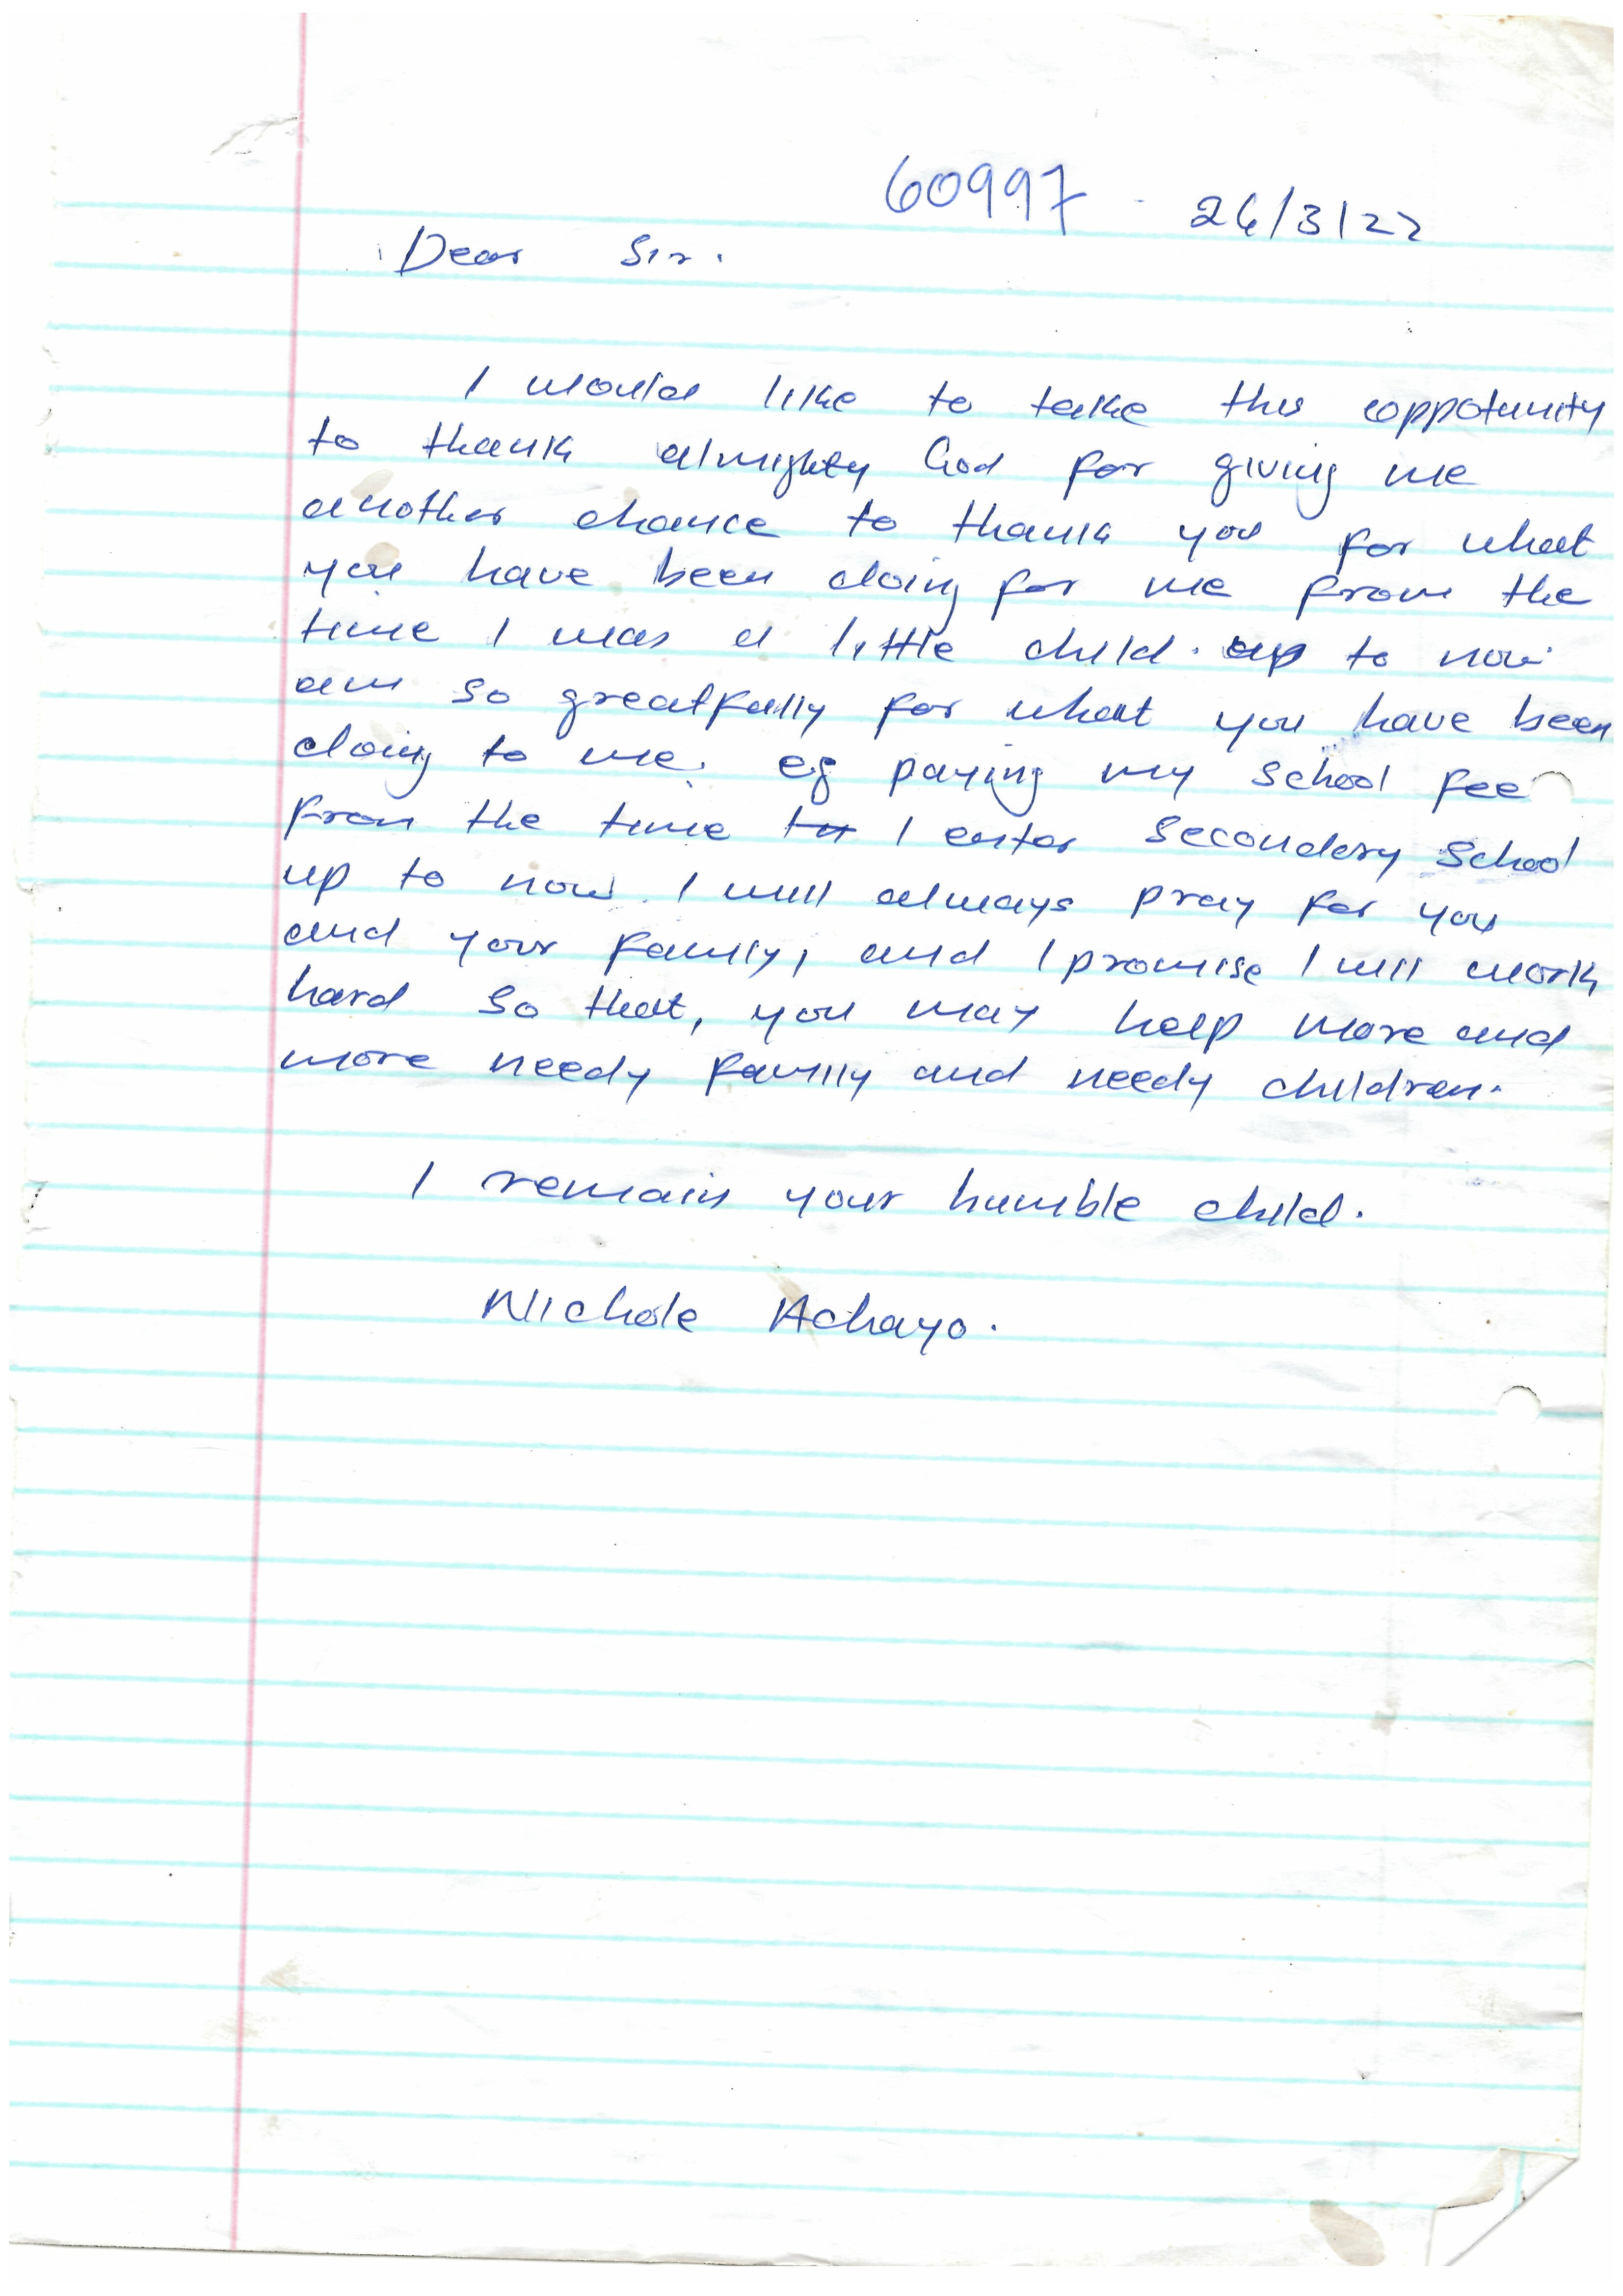 60997 26/3/22
Dear Sir.
I would like to take this oppotunity
to thank almighty God for giving me
another chance to thank you for what
you have been doing for me from the
time I was a little child. up to now
am so greatfully for what you have been
doing to me. eg paying my school fee
from the time I enter secondery school
up to now. I will always pray for you
and your family, and I promise I will work
hard so that, you may help more and
more needy family and needy children.
I remain your humble child.
Nichole Achayo.